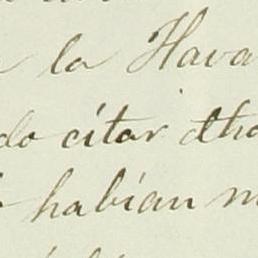 la Hava
do citar dho
habían m